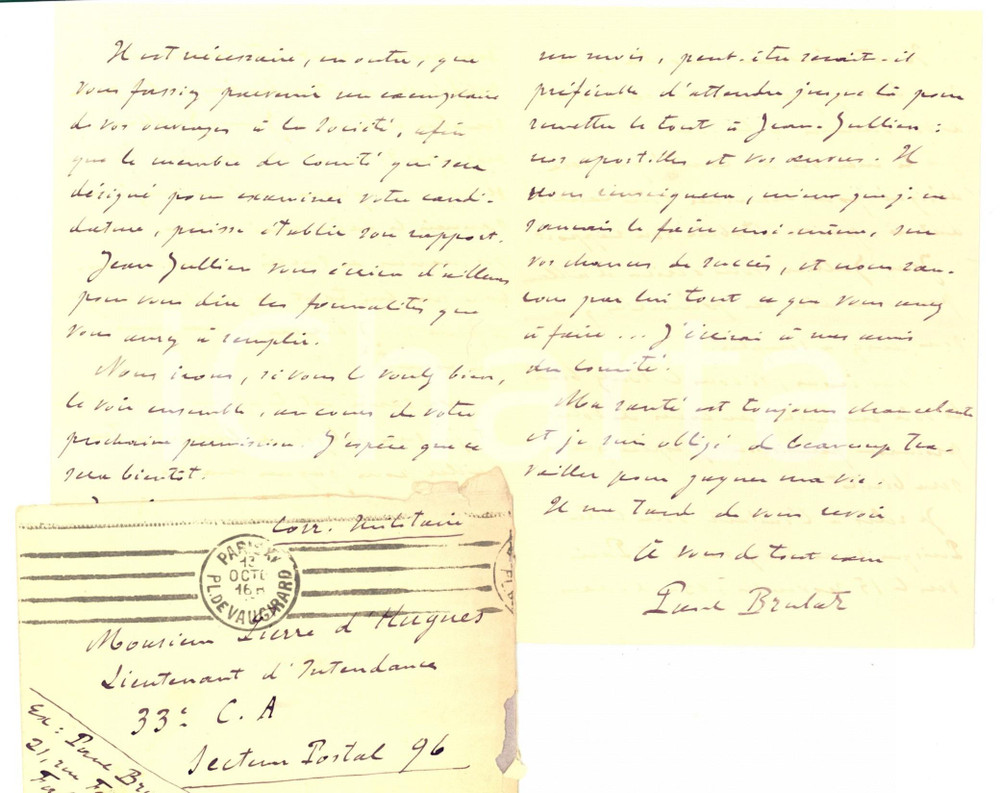 Il est nécessaire, en outre, que
vous fassiez parvenir un exemplaire
de vos ouvrages à la Société, afin
que le membre du Comité qui sera
désigné pour examiner votre candi-
dature, puisse établir son rapport.
Jean Jullien vous écrira d'ailleurs
pour vous dire les formalités que
vous aurez à remplir.
Nous irons, si vous le voulez bien,
le voir ensemble, au cours de votre
prochaine permission. J'espère que ce
sera bientôt.
un mois, peut-être serait-il
préférable d'attendre jusque là pour
remettre le tout à Jean-Jullien :
nos apostilles et vos œuvres. Il
nous renseignera, mieux que je ne
saurais le faire moi-même, sur
vos chances de succès, et nous sau-
rons par lui tout ce que vous avez
à faire ... J'écrirai à mes amis
du Comité.
Ma santé est toujours chancelante
et je suis obligé de beaucoup tra-
vailler pour gagner ma vie.
Il me tarde de vous revoir
À vous de tout cœur
Paul Brulat
Corr. Militaire
PARIS XV
13
OCTO
16H
PL. DE VAUGIRARD
Monsieur Pierre d'Hugues
Lieutenant d'Intendance
33e C. A
Secteur Postal 96
Ex : Paul Bru
21, rue
traces
Icharta